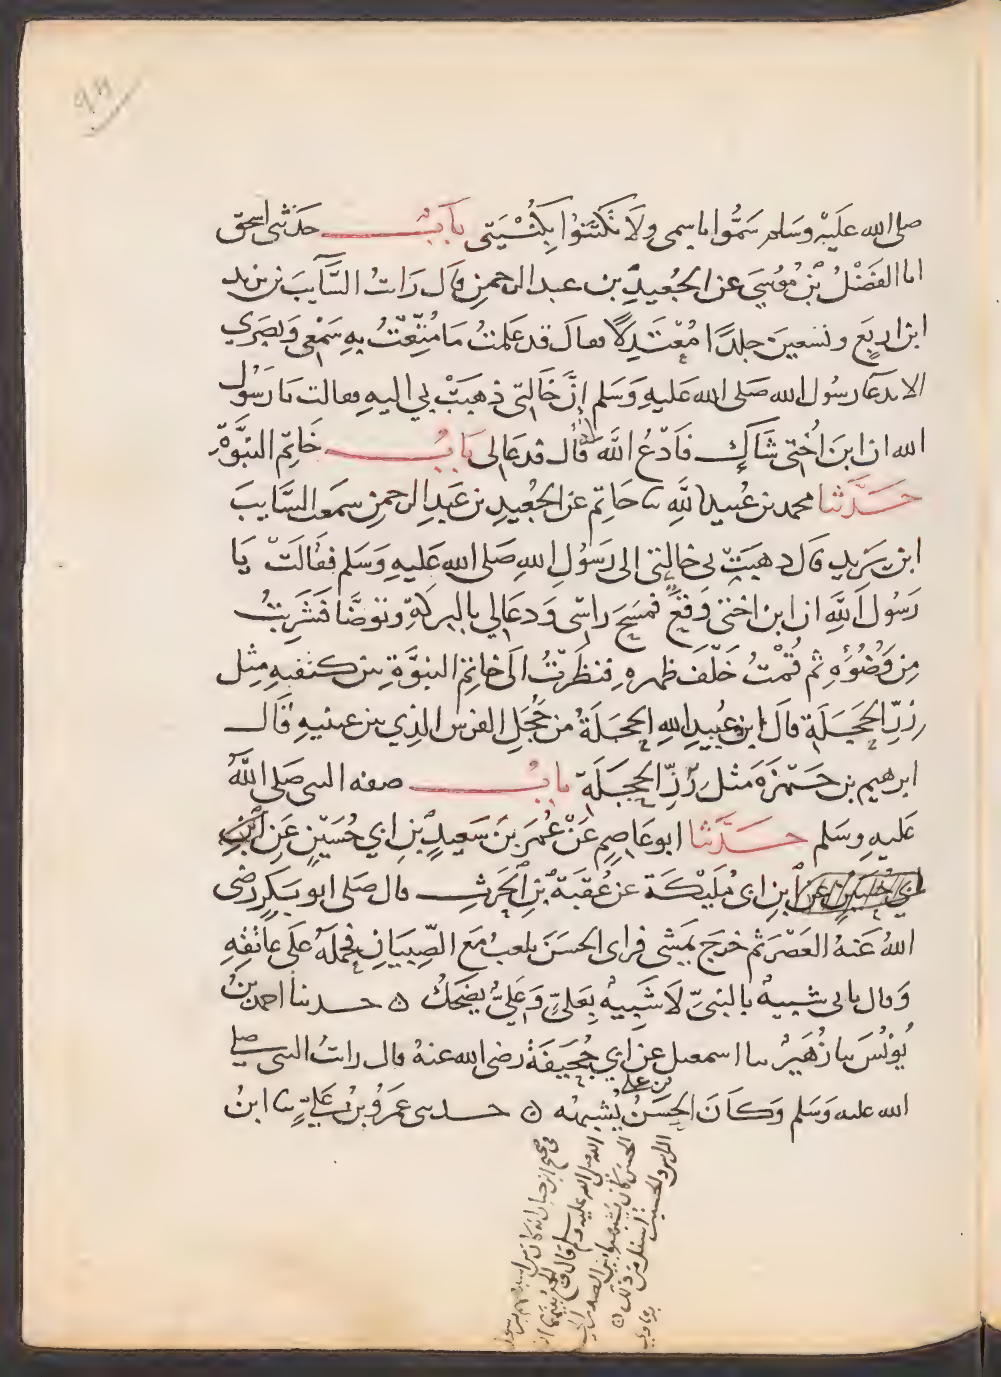 صلى الله عليه وسلم سموا باسمي ولا تكتنوا بكنيتي باب حدثني اسحق
انا الفضل بن موسى عن الجعيد بن عبد الرحمن قال رايت السايب بن يزيد
ابن اربع وتسعين جلدا معتدلا فقال قد علمت ما متعت به سمعي وبصري
الا بدعا رسول الله صلى الله عليه وسلم ان خالتي ذهبت بي اليه فقالت يا رسول
الله ان ابن اختي شاك فادع الله له قال فدعا لي باب خاتم النبوة
حدثنا محمد بن عبيد الله ثنا حاتم عن الجعيد بن عبد الرحمن سمعت السايب
ابن يزيد قال ذهبت بي خالتي الى رسول الله صلى الله عليه وسلم فقالت يا
رسول الله ان ابن اختي وقع فمسح راسي ودعا لي بالبركة وتوضا فشربت
من وضوءه ثم قمت خلف ظهره فنظرت الى خاتم النبوة بين كتفيه مثل
زر الحجلة قال ابن عبيد الله الحجلة من حجل الفرس الذي بين عينيه قال
ابرهيم بن حمزة مثل رز الحجلة باب صفة النبي صلى الله
عليه وسلم حدثنا ابو عاصم عن عمر بن سعيد بن ابي حسين عن ابن
ابي حسين عن ابن ابي مليكة عن عقبة بن الحرث قال صلى ابو بكر رضي
الله عنه العصر ثم خرج يمشي فراى الحسن يلعب مع الصبيان فحمله على عاتقه
وقال بابي شبيه بالنبي لا شبيه بعلي وعلي يضحك ○ حدثنا احمد بن
يونس ثنا زهير ثنا اسمعيل عن ابي جحيفة رضي الله عنه قال رايت النبي صلى
الله عليه وسلم وكان الحسن بن علي يشبهه ○ حدثني عمرو بن علي ثنا ابن